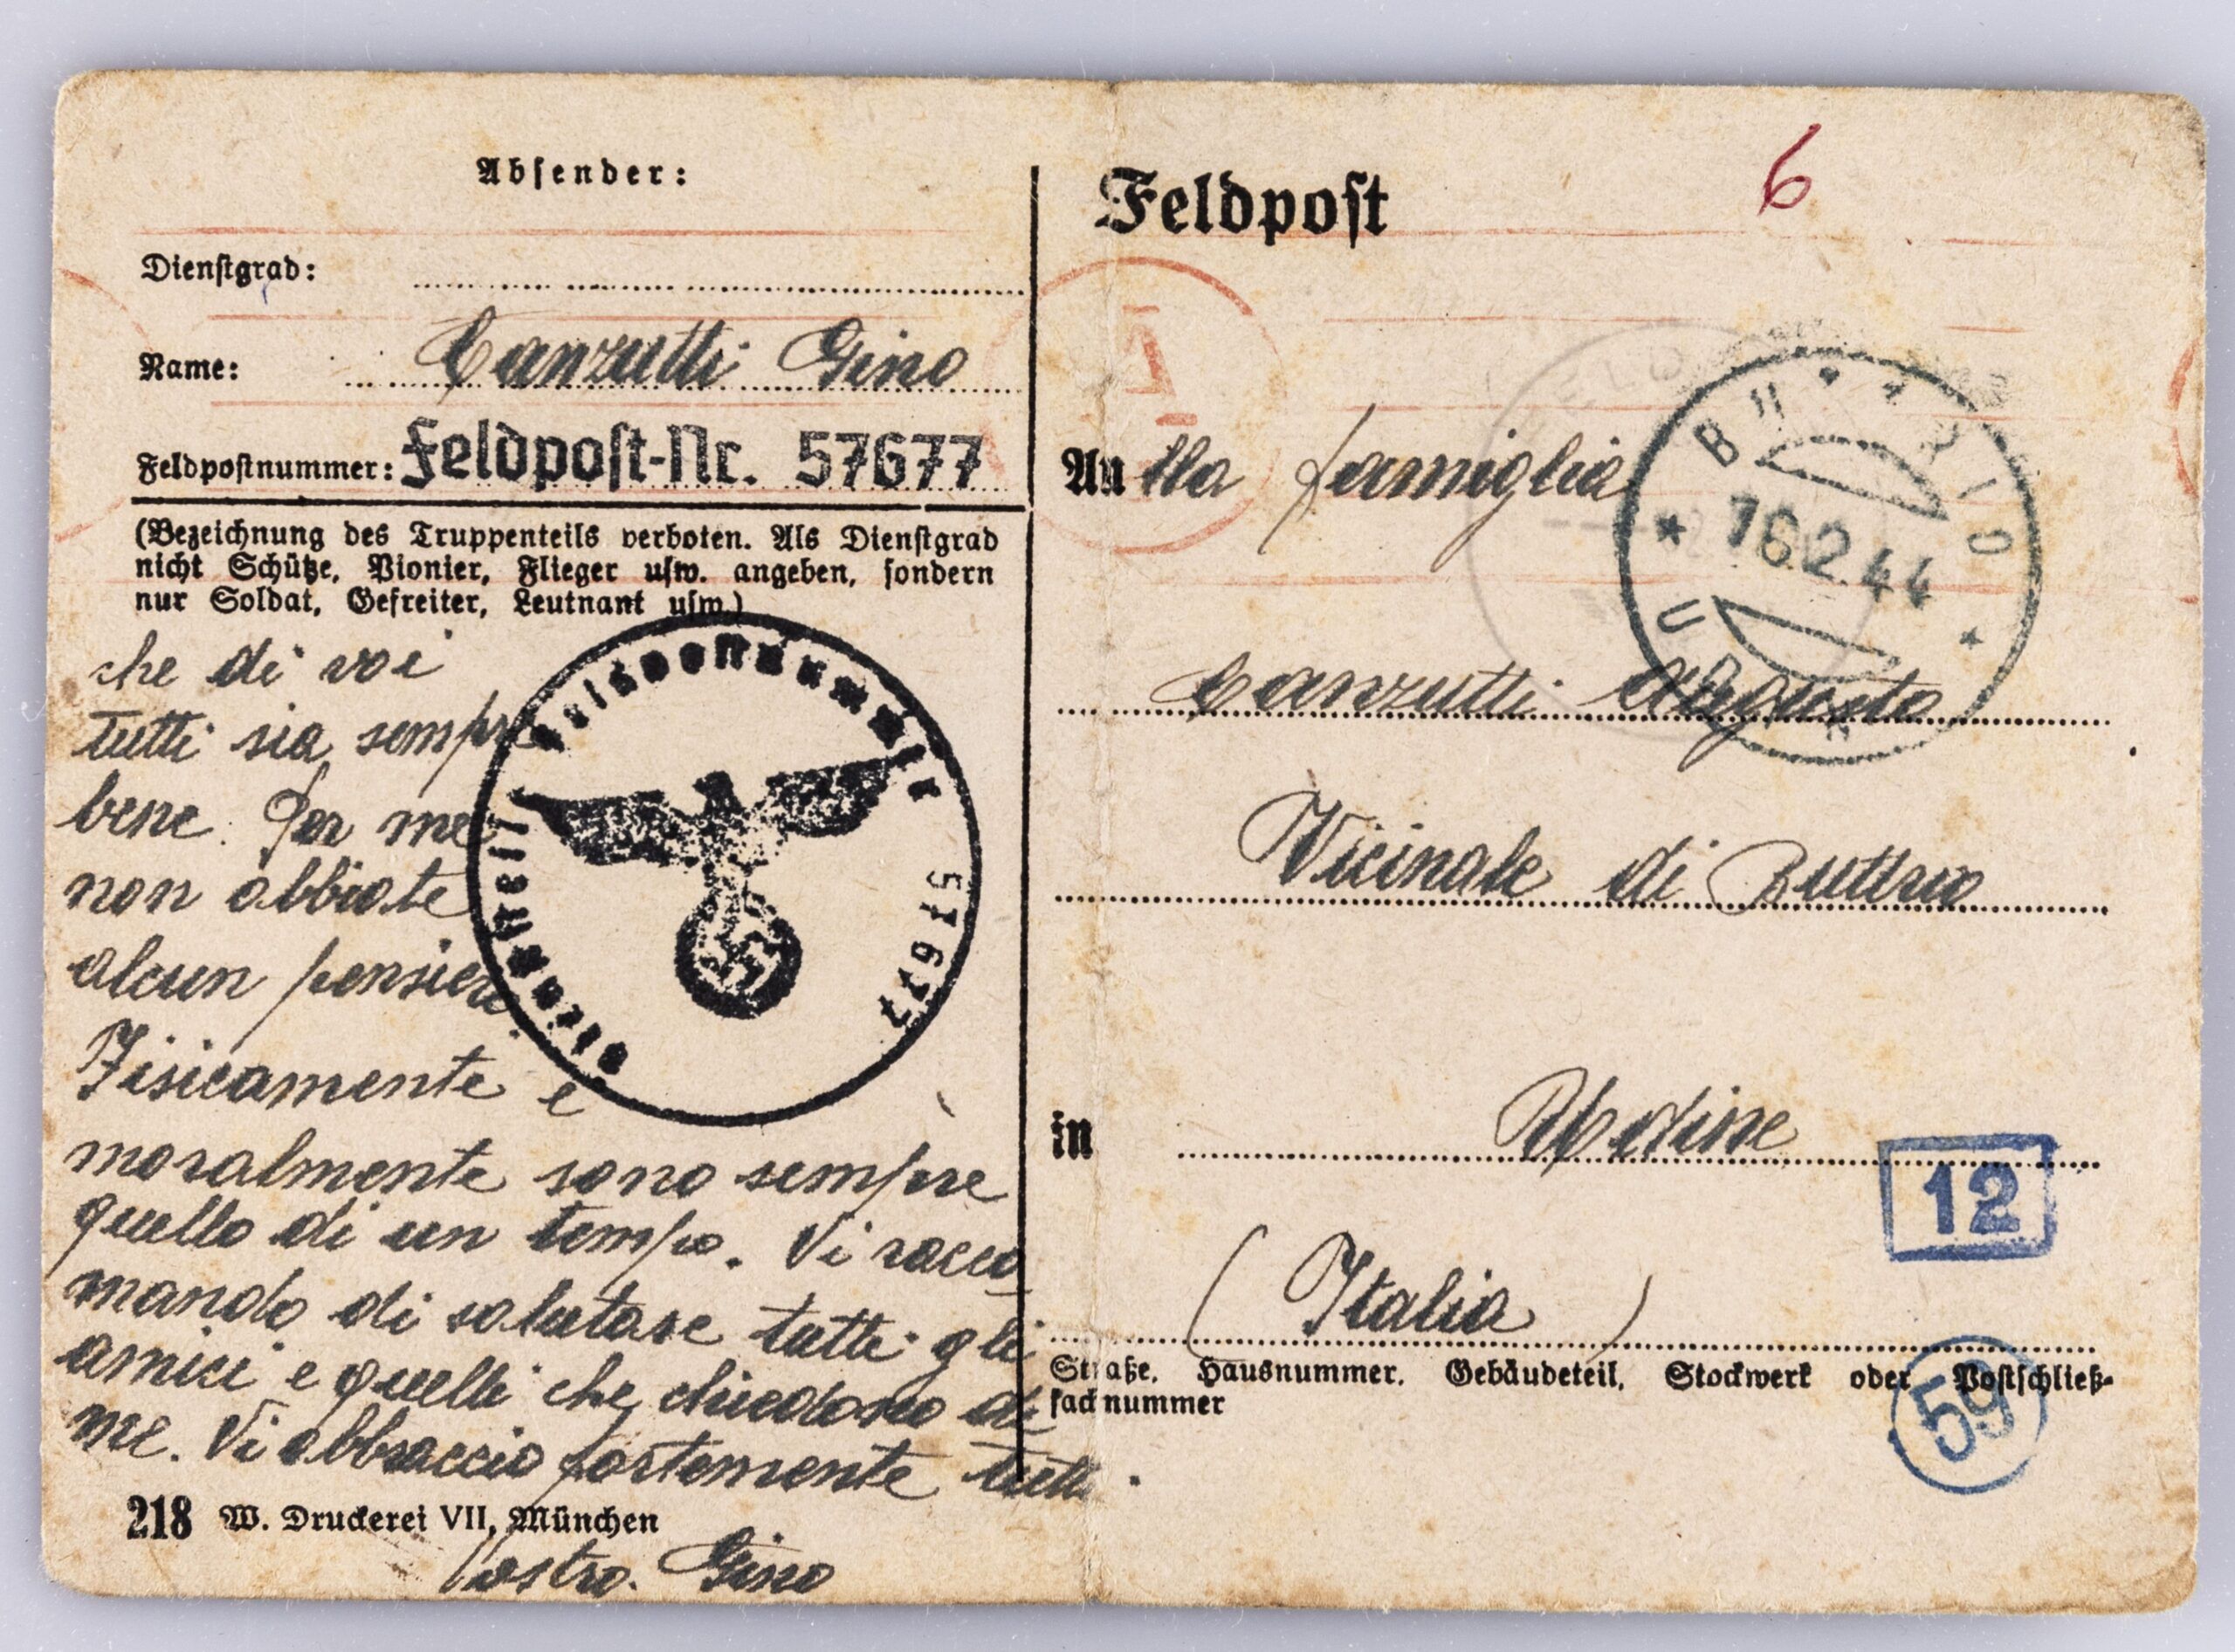 Absender:
Dienstgrad:
Name: Canzutti Gino
Feldpostnummer: Feldpost-Nr. 57677
(Bezeichnung des Truppenteils verboten. Als Dienstgrad
nicht Schütze, Pionier, Flieger usw. angeben, sondern
nur Soldat, Gefreiter, Leutnant usw.)
che di voi
tutti sia sempre
bene. Per me
non abbiate
alcun pensiero
Fisicamente e
moralmente sono sempre
quello di un tempo. Vi racco
mando di salutare tutti gli
amici e quelli che chiedono di
me. Vi abbraccio fortemente tutti.
Vostro. Gino
218 W. Druckerei VII, München
Feldpostnummer 57677
Feldpost
6
An lla famiglia
Canzutti Augusto
Vicinale di Buttrio
in Udine
(Italia)
Straße, Hausnummer, Gebäudeteil, Stockwerk oder Postschließ-
fachnummer
BUTTRIO
16.2.44
UDINE
12
59